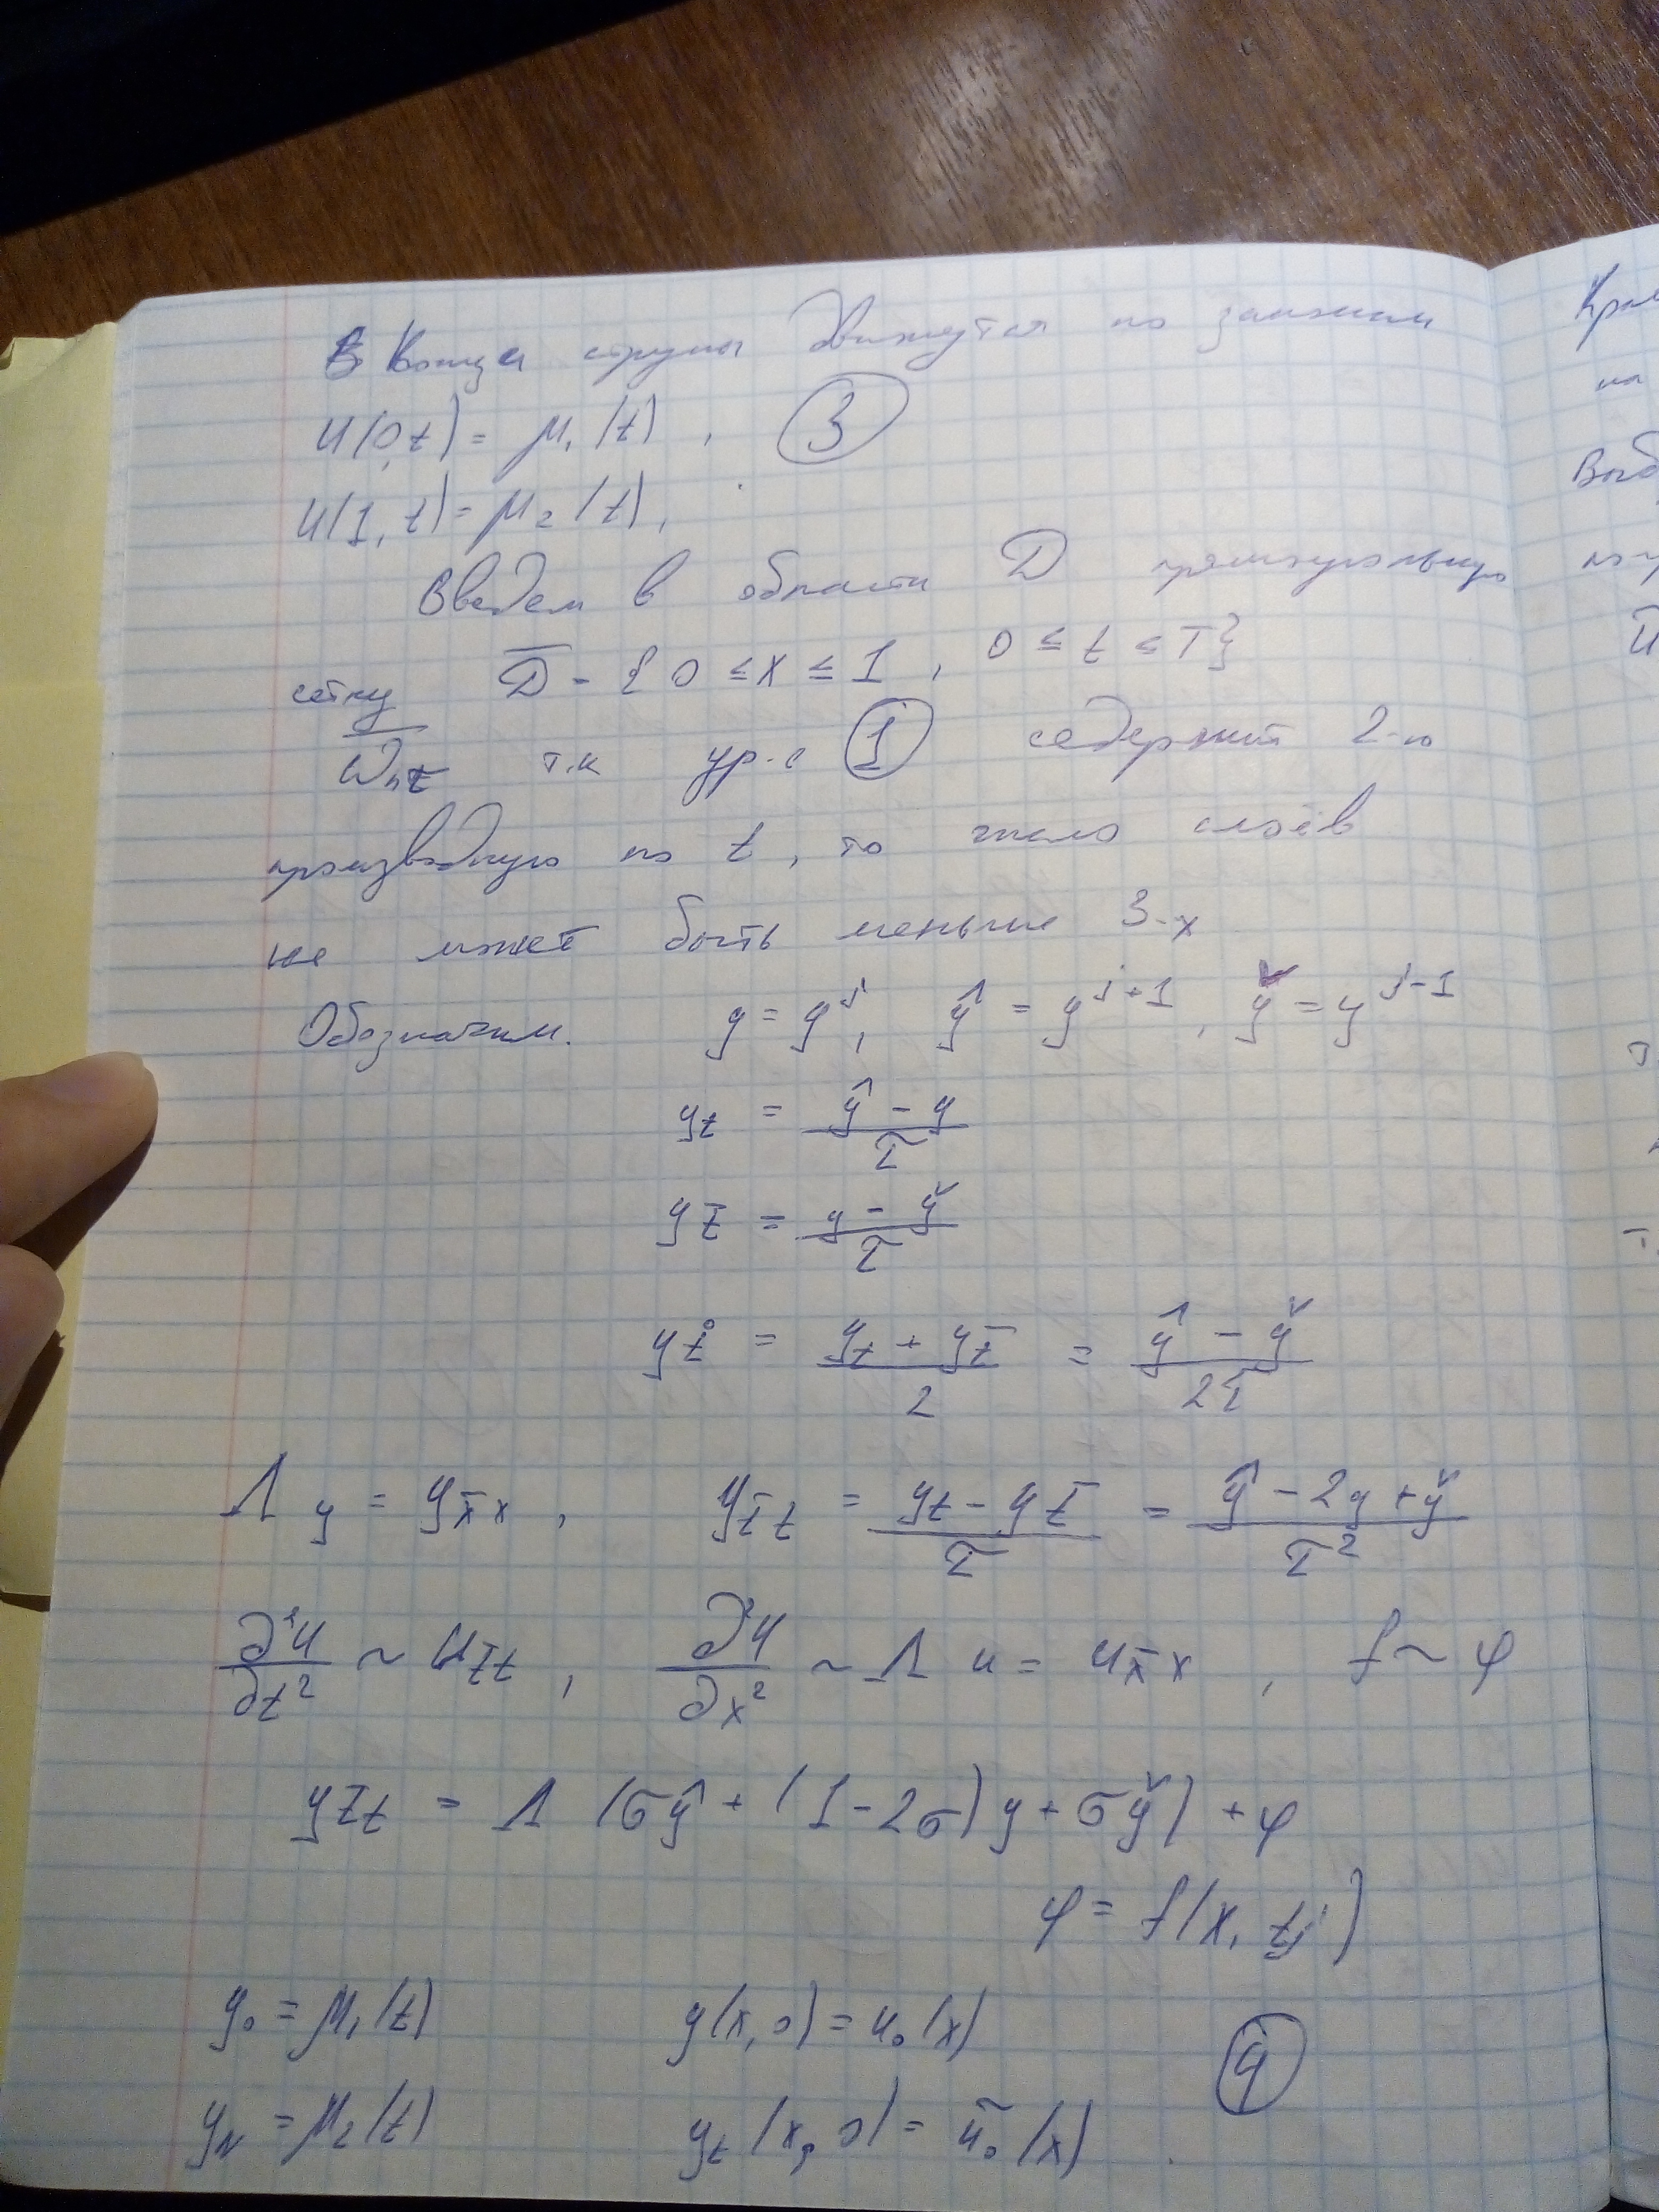 Концы струны движутся по законам
u(0,t) = μ₁(t), ③
u(1,t) = μ₂(t),
Введем в области D прямоугольную
сетку D̅ - {0 ≤ x ≤ 1, 0 ≤ t ≤ T}
ω̅hτ т.к ур-е ① содержит 2-ю
производную по t, то число слоёв
не может быть меньше 3-х
Обозначим. y = yʲ, ŷ = yʲ⁺¹, y̌ = yʲ⁻¹
y_t = (ŷ - y)/τ
y_t̅ = (y - y̌)/τ
y_t° = (y_t + y_t̅)/2 = (ŷ - y̌)/2τ
Λy = y_x̅x, y_t̅t = (y_t - y_t̅)/τ = (ŷ - 2y + y̌)/τ²
∂²u/∂t² ~ u_t̅t, ∂²u/∂x² ~ Λu = u_x̅x, f ~ φ
y_t̅t = Λ(σŷ + (1-2σ)y + σy̌) + φ
φ = f(x, tⱼ)
y₀ = μ₁(t) y(x,0) = u₀(x)
y_N = μ₂(t) y_t(x,0) = ũ₀(x) ④
Выб